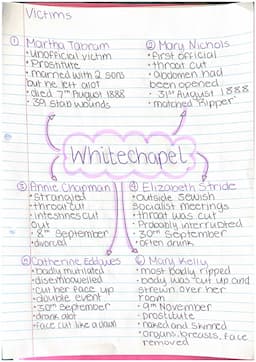 Victims
① Martha Tabram
• unofficial victim
• Prostitute
• married with 2 sons
but he left alot
• died 7th August 1888
• 39 stab wounds
② Mary Nichols
• First official
• throat cut
• Abdomen had
been opened
• 31st August 1888
• matched "Ripper"
Whitechapel
③ Annie Chapman
• strangled
• throat cut
• intestines cut
out
• 8th September
• divorced
④ Elizabeth Stride
• outside Jewish
socialist meetings
• throat was cut
• Probably interrupted
• 30th September
• often drunk
⑤ Catherine Eddowes
• badly mutilated
• disembowelled
• cut her face up
• double event
• 30th September
• drank alot
• face cut like a
⑥ Mary Kelly
• most badly ripped
• body was cut up and
strewn over her
room
• 9th November
• prostitute
• naked and skinned
• organs, breasts, face
removed